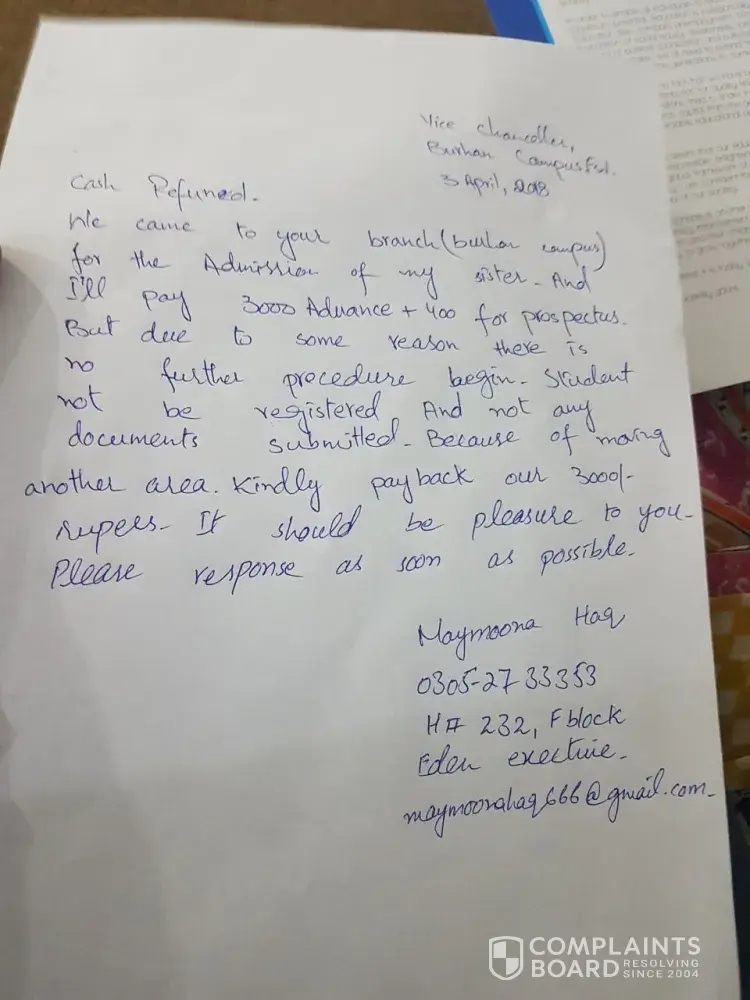 Vice Chancller,
Burhan Campus Fsd.
3 April, 2018
Cash Refuned.
We came to your branch (burhan campus)
for the Admission of my sister. And
I'll pay 3000 Advance + 400 for prospectus.
But due to some reason there is
no further procedure begin. Student
not be registered And not any
documents submitted. Because of moving
another area. Kindly payback our 3000/-
rupees. It should be pleasure to you.
Please response as soon as possible.
Maymoona Haq
0305-2733353
H# 232, F block
Eden exective.
maymoonahaq666@gmail.com.
COMPLAINTS
BOARD RESOLVING
SINCE 2004